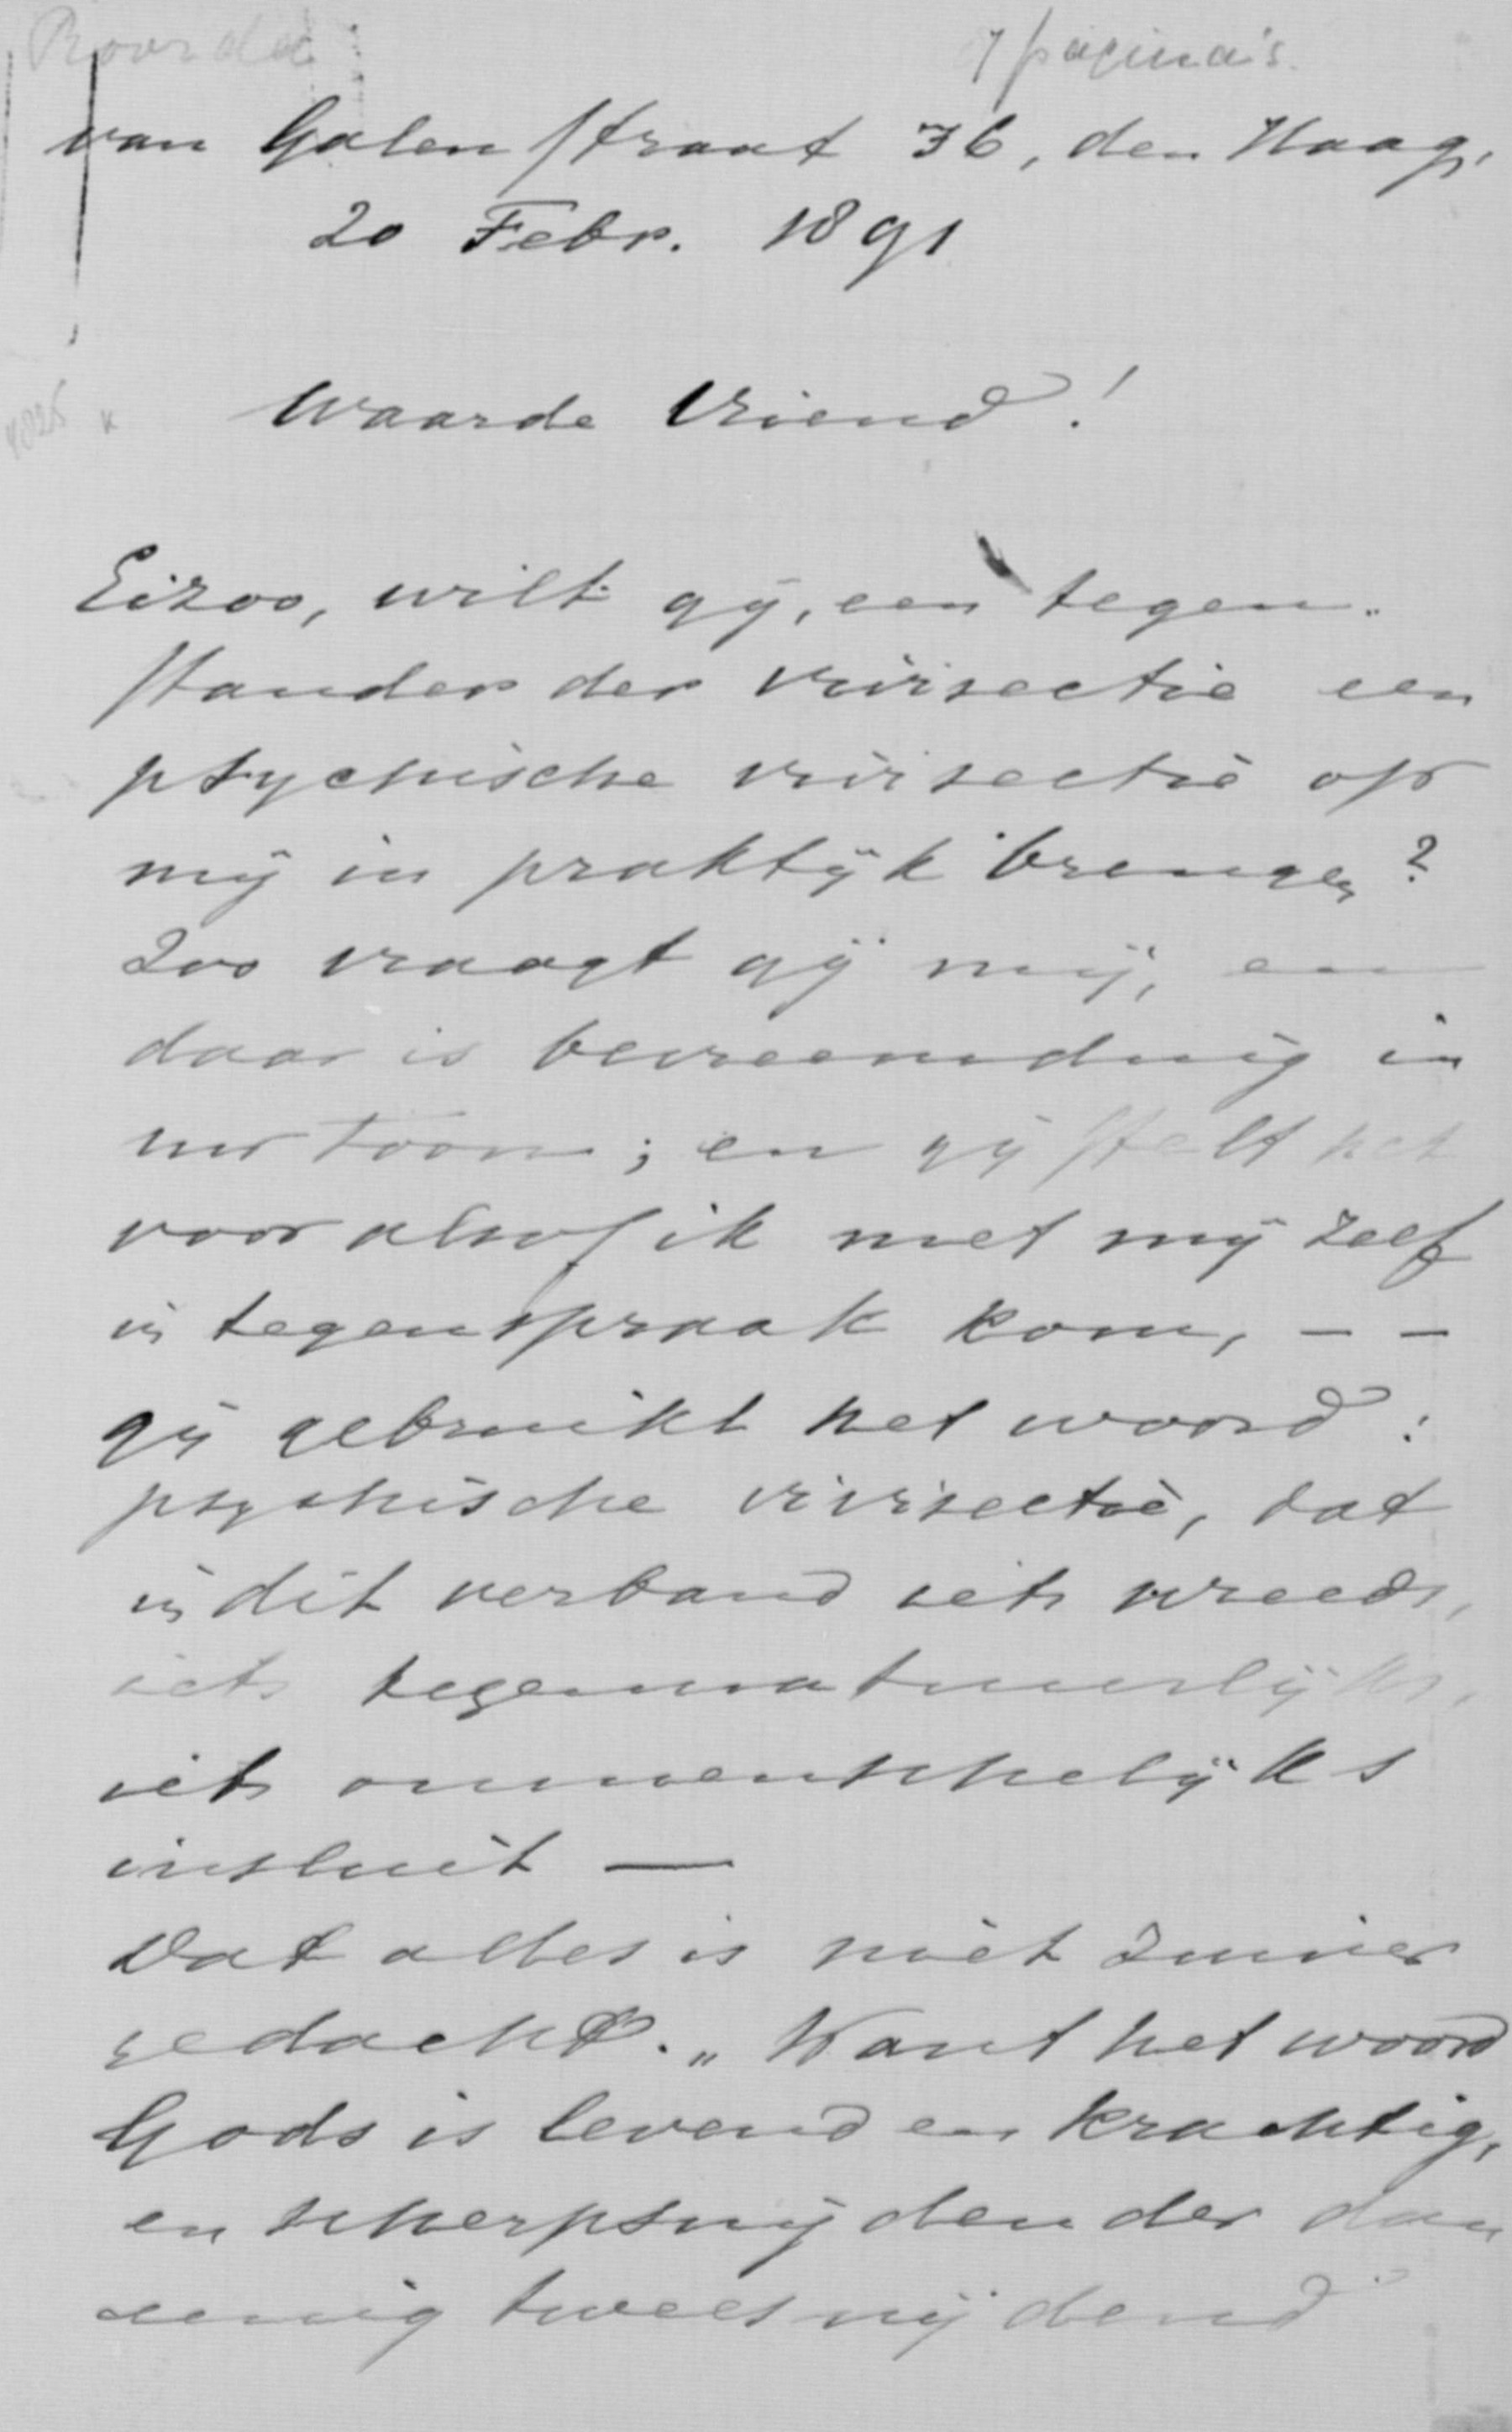 Roorda
7 pagina's.
van Galenstraat 36, den Haag,
20 Febr. 1891
Waarde Vriend!
Eizoo, wilt gij, een tegen-
stander der vivisectie een
psychische vivisectie op
mij in praktijk brengen?
Zoo vraagt gij mij, en
daar is bevreemding in
uw toon; en gij stelt het
voor alsof ik met mij zelf
in tegenspraak kom, – –
gij gebruikt het woord:
psychische vivisectie, dat
in dit verband iets wreeds,
iets tegennatuurlijks,
iets onmenschelijks
insluit —
Dat alles is niet zuiver
gedacht. „Want het woord
Gods is levend en krachtig,
en scherpsnijdender dan
eenig tweesnijdend